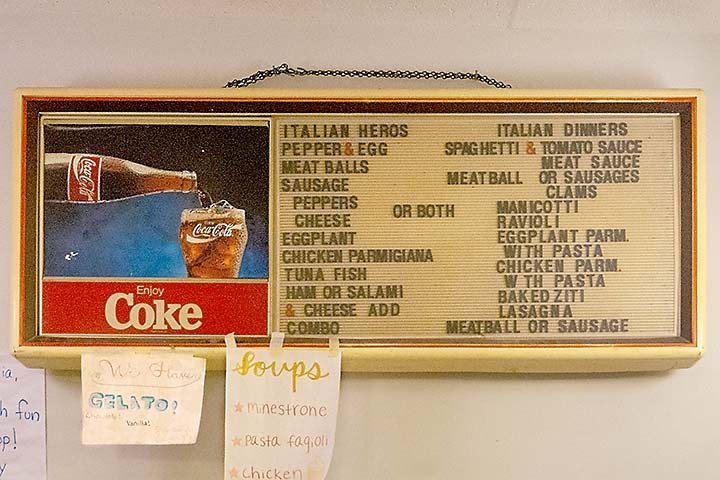 Coca-Cola
Coca-Cola
Enjoy
Coke
ITALIAN HEROS
PEPPER & EGG
MEAT BALLS
SAUSAGE
PEPPERS
OR BOTH
CHEESE
EGGPLANT
CHICKEN PARMIGIANA
TUNA FISH
HAM OR SALAMI
& CHEESE ADD
COMBO
ITALIAN DINNERS
SPAGHETTI & TOMATO SAUCE
MEAT SAUCE
MEATBALL OR SAUSAGES
CLAMS
MANICOTTI
RAVIOLI
EGGPLANT PARM.
WITH PASTA
CHICKEN PARM.
W TH PASTA
BAKED ZITI
LASAGNA
MEATBALL OR SAUSAGE
We Have
GELATO!
Vanilla!
Soups
minestrone
pasta fagioli
chicken
ia,
h fun
op!
y